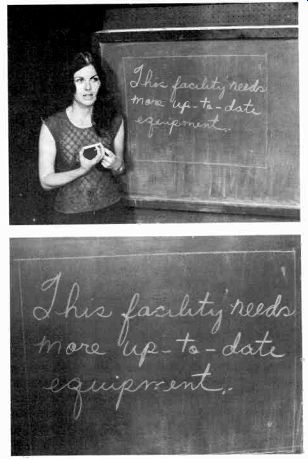 This facility needs
more up-to-date
equipment.
This facility needs
more up-to-date
equipment.